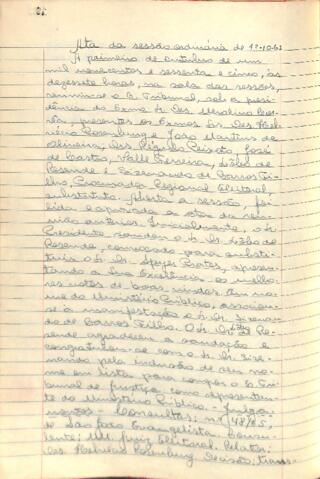 Ata da sessão ordinária de 1º-10-65
A primeiro de outubro de um
mil novecentos e sessenta e cinco, às
dezessete horas, na sala das sessões,
reuniu-se o E. Tribunal, sob a presi-
dência do Exmo Sr. Des.
presentes os Exmos Srs. Des. Hel-
vécio Rosenburg e João Martins de
Oliveira, Drs. Régulo Peixoto, José
de Castro, Valle Ferreira, Lobo de
Rezende e Fernando de Barros Fi-
lho, Procurador Regional Eleitoral,
substituto. Aberta a sessão, foi
lida e aprovada a ata da reu-
nião anterior. Inicialmente, o Sr.
Presidente saudou o Sr. Dr. Lobo de
Rezende, convocado para substi-
tuir o Sr. Dr. apresen-
tando a Sua Excelência os melho-
res votos de boas vindas. Em no-
me do Ministério Público, associou-
se à manifestação o Sr. Dr.
do de Barros Filho. O Sr. Dr. Lobo de Re-
zende agradeceu a saudação e
congratulou-se com o Sr. Dr.
pela inclusão de seu no-
me em lista para compor o E. Tri-
bunal de Justiça como representan-
te do Ministério Público. - Julga-
mentos - Consultas: nº 48/65,
de São João Evangelista. Consu-
lente: MM. Juiz Eleitoral. Relator:
Des. Helvécio Rosenburg. Decisão: